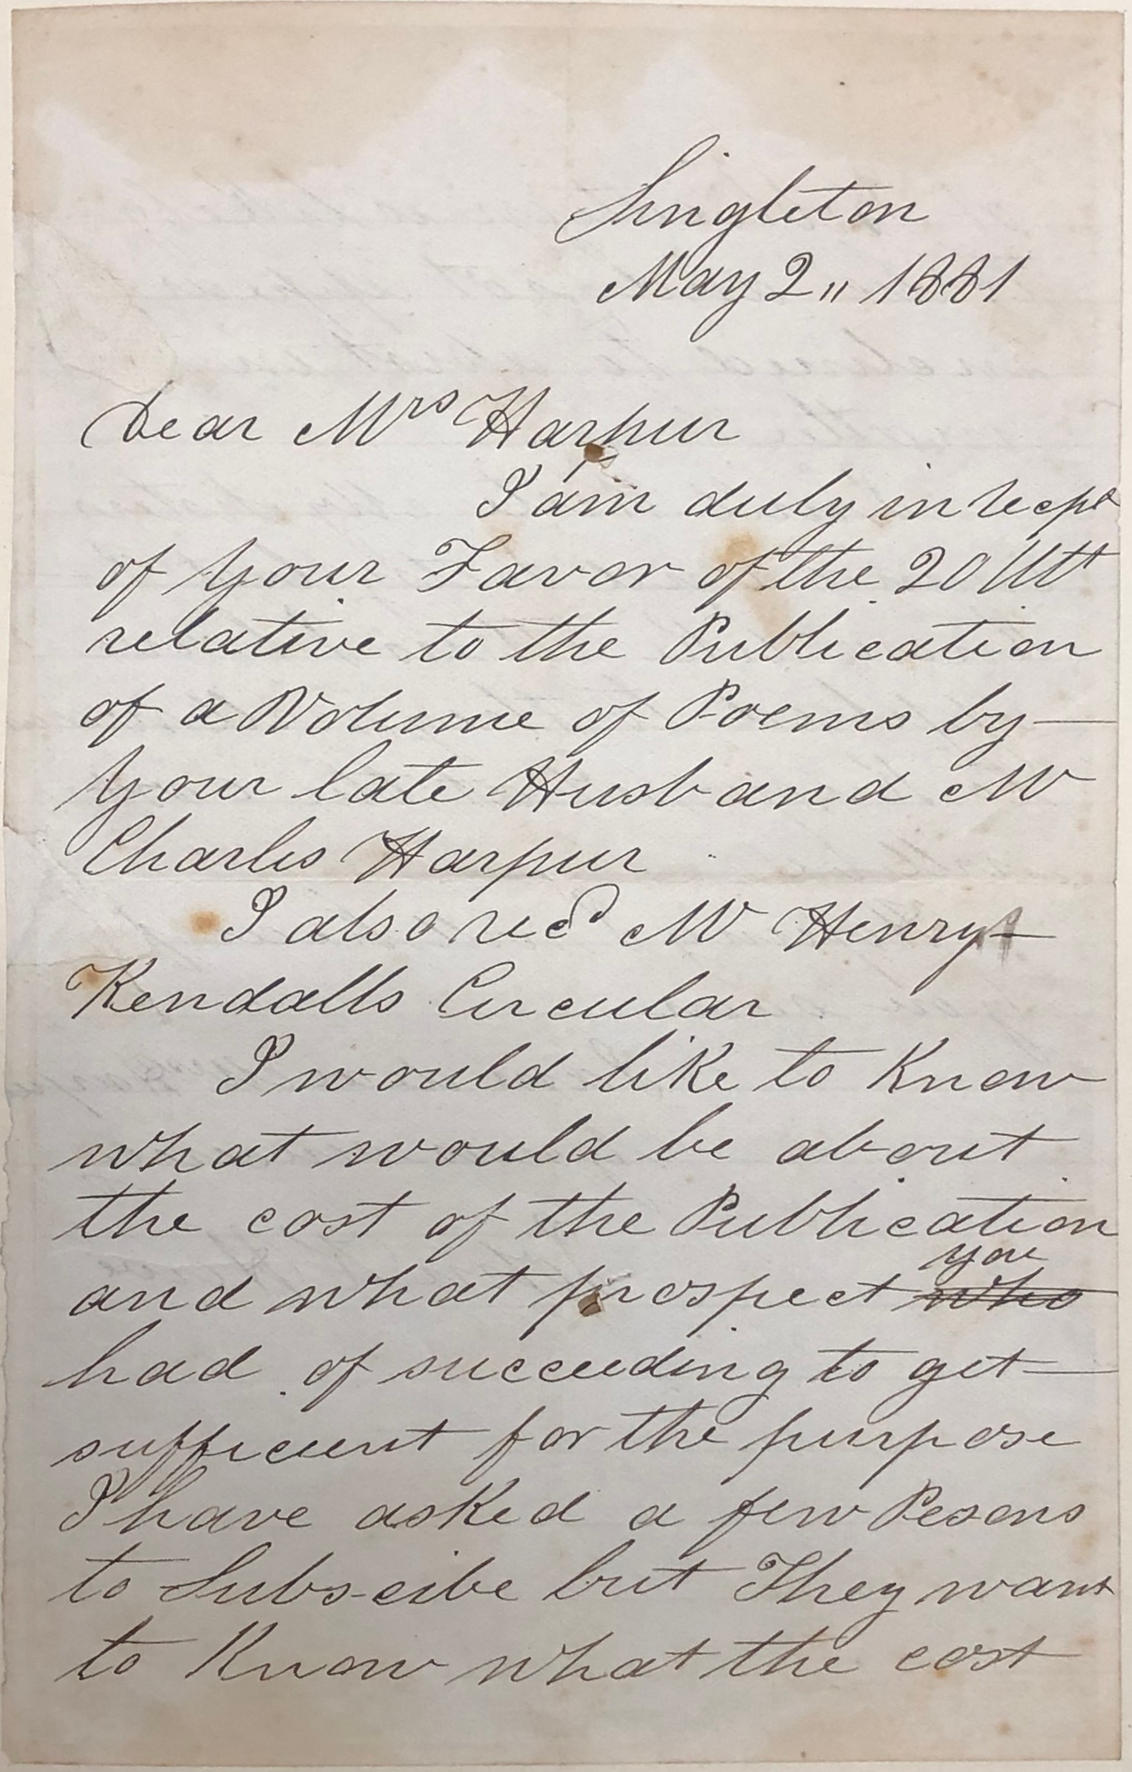 Singleton
May 2,, 1881
Dear Mrs Harpur
I am duly in recpt
of your Favor of the 20 Ultt
relative to the Publication
of a Volume of Poems by
your late Husband Mr
Charles Harpur
I also recd Mr Henry
Kendalls Circular
I would like to Know
what would be about
the cost of the Publication
and what prospect who you
had of succeeding to get
sufficient for the purpose
I have asked a few Pesons
to Subscibe but They want
to Know what the cost